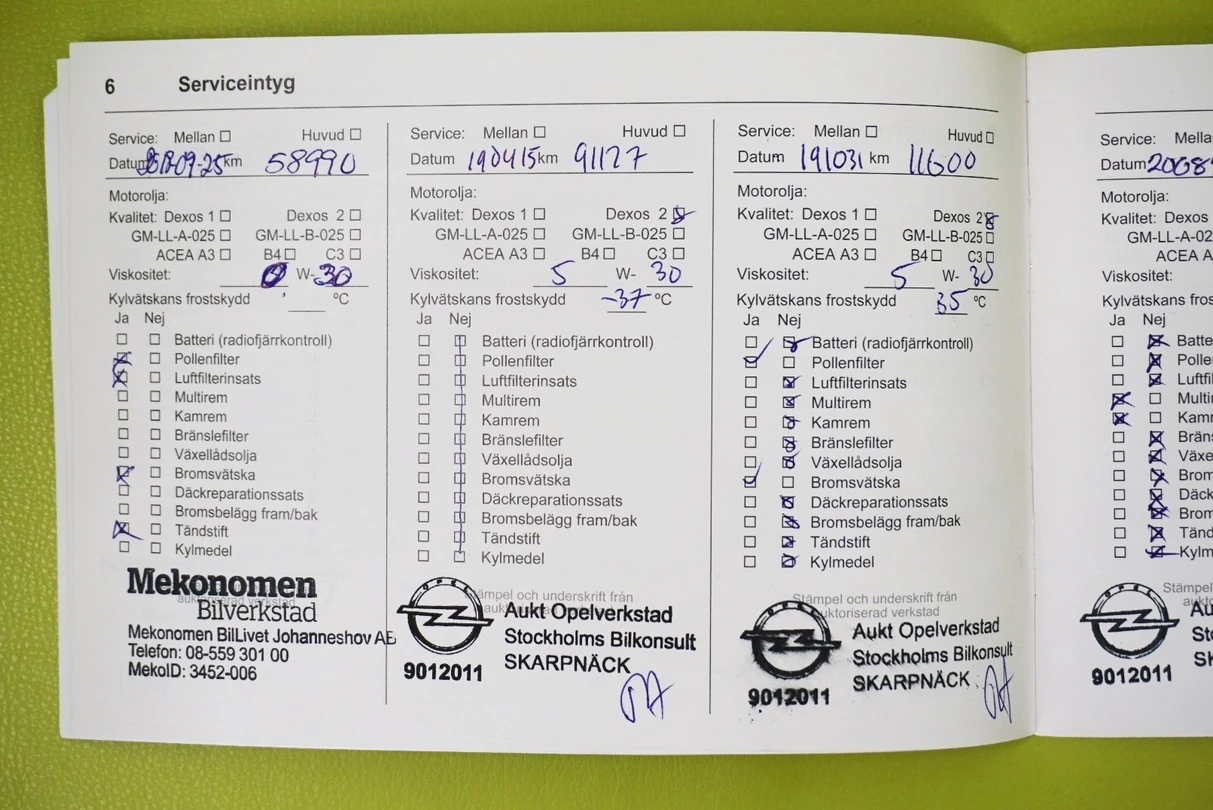 6 Serviceintyg
Service: Mellan ☐ Huvud ☐
Datum 18-09-25 km 58990
Motorolja:
Kvalitet: Dexos 1 ☐ Dexos 2 ☐
GM-LL-A-025 ☐ GM-LL-B-025 ☐
ACEA A3 ☐ B4 ☐ C3 ☐
Viskositet: 0 W-30
Kylvätskans frostskydd °C
Ja Nej
☐ ☐ Batteri (radiofjärrkontroll)
☒ ☐ Pollenfilter
☒ ☐ Luftfilterinsats
☐ ☐ Multirem
☐ ☐ Kamrem
☐ ☐ Bränslefilter
☐ ☐ Växellådsolja
☒ ☐ Bromsvätska
☐ ☐ Däckreparationssats
☐ ☐ Bromsbelägg fram/bak
☒ ☐ Tändstift
☐ ☐ Kylmedel
Mekonomen
Bilverkstad
Mekonomen BilLivet Johanneshov AB
Telefon: 08-559 301 00
MekoID: 3452-006
Service: Mellan ☐ Huvud ☐
Datum 190415 km 91127
Motorolja:
Kvalitet: Dexos 1 ☐ Dexos 2 ☒
GM-LL-A-025 ☐ GM-LL-B-025 ☐
ACEA A3 ☐ B4 ☐ C3 ☐
Viskositet: 5 W- 30
Kylvätskans frostskydd -37 °C
Ja Nej
☐ ☐ Batteri (radiofjärrkontroll)
☐ ☐ Pollenfilter
☐ ☐ Luftfilterinsats
☐ ☐ Multirem
☐ ☐ Kamrem
☐ ☐ Bränslefilter
☐ ☐ Växellådsolja
☐ ☐ Bromsvätska
☐ ☐ Däckreparationssats
☐ ☐ Bromsbelägg fram/bak
☐ ☐ Tändstift
☐ ☐ Kylmedel
Stämpel och underskrift från
OPEL
Aukt Opelverkstad
Stockholms Bilkonsult
SKARPNÄCK
9012011
Service: Mellan ☐ Huvud ☐
Datum 191031 km 11600
Motorolja:
Kvalitet: Dexos 1 ☐ Dexos 2 ☒
GM-LL-A-025 ☐ GM-LL-B-025 ☐
ACEA A3 ☐ B4 ☐ C3 ☐
Viskositet: 5 W- 30
Kylvätskans frostskydd 35 °C
Ja Nej
☐ ☒ Batteri (radiofjärrkontroll)
☑ ☐ Pollenfilter
☐ ☒ Luftfilterinsats
☐ ☒ Multirem
☐ ☒ Kamrem
☐ ☒ Bränslefilter
☐ ☒ Växellådsolja
☑ ☐ Bromsvätska
☐ ☒ Däckreparationssats
☐ ☒ Bromsbelägg fram/bak
☐ ☒ Tändstift
☐ ☒ Kylmedel
Stämpel och underskrift från
auktoriserad verkstad
OPEL
Aukt Opelverkstad
Stockholms Bilkonsult
SKARPNÄCK
9012011
Service: Mella
Datum
Motorolja:
Kvalitet: Dexos
GM-LL-A-02
ACEA A
Viskositet:
Kylvätskans fros
Ja Nej
☐ ☒ Batte
☐ ☒ Polle
☐ ☒ Luftfi
☒ ☐ Multi
☒ ☐ Kamr
☐ ☒ Bräns
☐ ☒ Växe
☐ ☒ Brom
☐ ☒ Däck
☐ ☒ Brom
☐ ☒ Tänd
☐ ☒ Kylm
Stämpel
OPEL
Au
St
SK
9012011